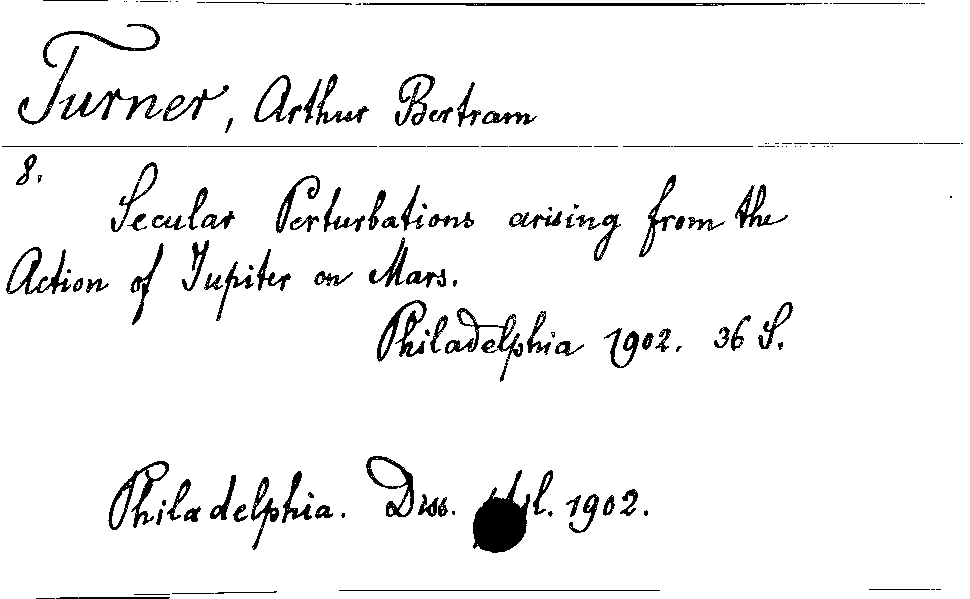 Turner, Arthur Bertram
8.
Secular Perturbations arising from the
Action of Jupiter on Mars.
Philadelphia 1902. 36 S.
Philadelphia. Diss. 1902.